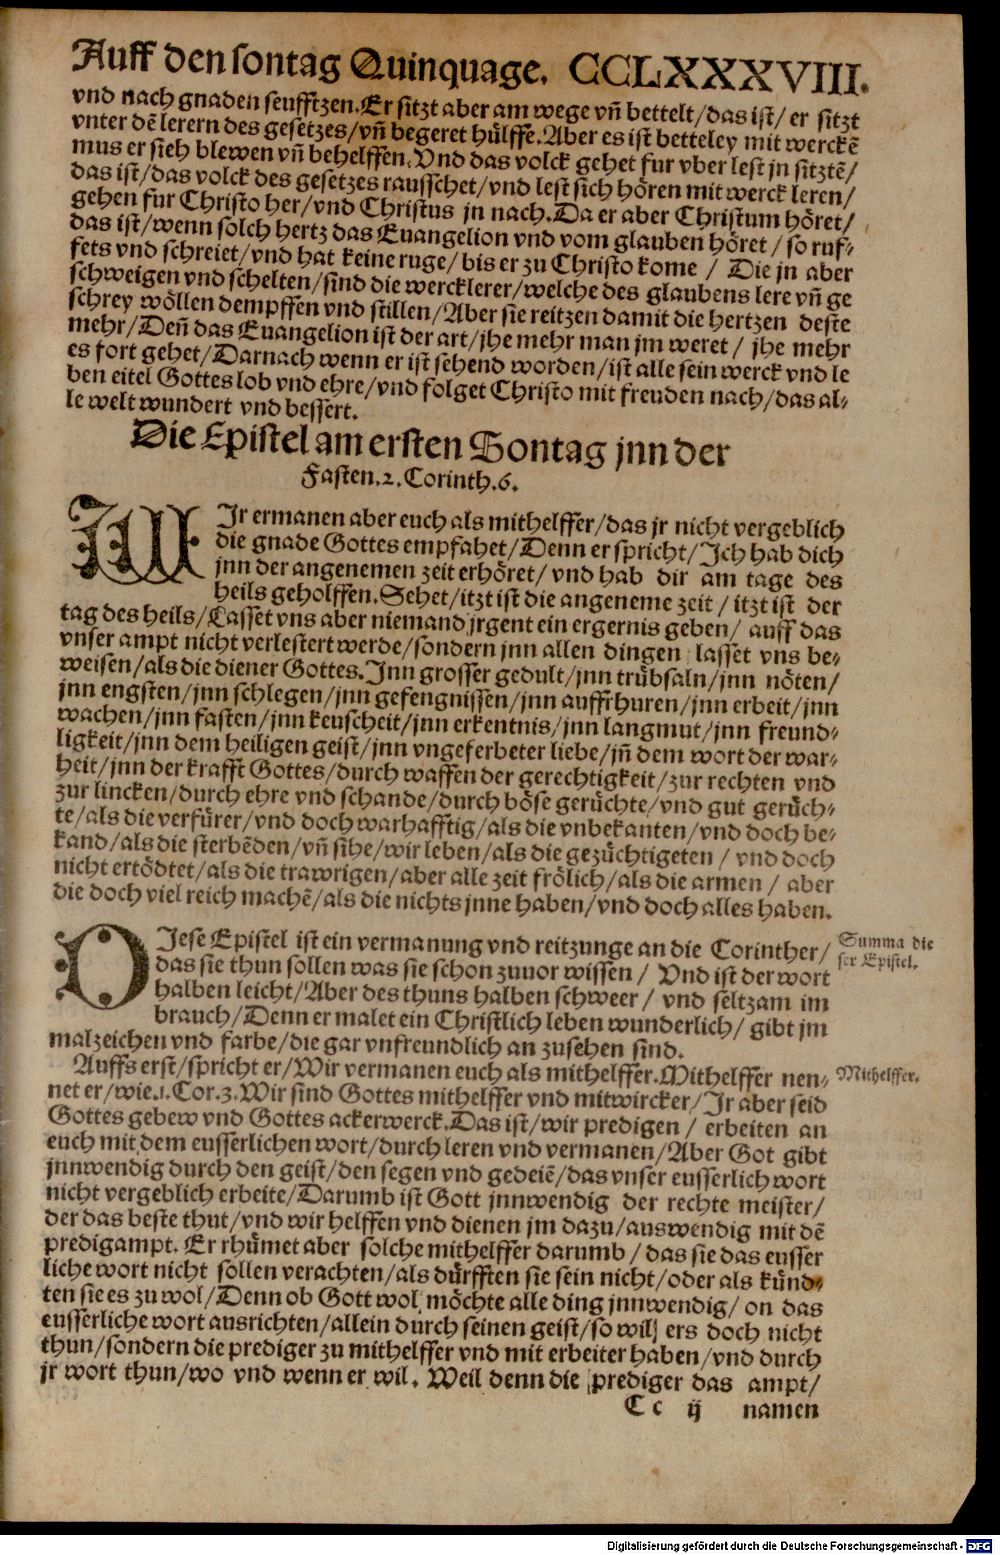 Auff den sontag Quinquage. CCLXXXVIII.
vnd nach gnaden seufftzen. Er sitzt aber am wege vñ bettelt/das ist/ er sitzt
vnter dē lerern des gesetzes/vñ begeret hülffe. Aber es ist betteley mit werckē
mus er sieh blewen vñ behelffen. Vnd das volck gehet fur vber lest jn sitztē/
das ist/das volck des gesetzes rausschet/vnd lest sich hören mit werck leren/
gehen fur Christo her/vnd Christus jn nach. Da er aber Christum höret/
das ist/wenn solch hertz das Euangelion vnd vom glauben höret/ so ruf-
fets vnd schreiet/vnd hat keine ruge/ bis er zu Christo kome / Die jn aber
schweigen vnd schelten/sind die wercklerer/welche des glaubens lere vñ ge
schrey wöllen dempffen vnd stillen/Aber sie reitzen damit die hertzen deste
mehr/Deñ das Euangelion ist der art/jhe mehr man jm weret / jhe mehr
es fort gehet/Darnach wenn er ist sehend worden/ist alle sein werck vnd le
ben eitel Gottes lob vnd ehre/vnd folget Christo mit freuden nach/das al-
le welt wundert vnd bessert.
Die Epistel am ersten Sontag jnn der
Fasten. 2. Corinth. 6.
WIr ermanen aber euch als mithelffer/das jr nicht vergeblich
die gnade Gottes empfahet/Denn er spricht/Ich hab dich
jnn der angenemen zeit erhöret/ vnd hab dir am tage des
heils geholffen. Sehet/itzt ist die angeneme zeit / itzt ist der
tag des heils/Lasset vns aber niemand jrgent ein ergernis geben/ auff das
vnser ampt nicht verlestert werde/sondern jnn allen dingen lasset vns be-
weisen/als die diener Gottes. Inn grosser gedult/jnn trübsaln/jnn nöten/
jnn engsten/jnn schlegen/jnn gefengnissen/jnn auffrhuren/jnn erbeit/jnn
wachen/jnn fasten/jnn keuscheit/jnn erkentnis/jnn langmut/jnn freund-
ligkeit/jnn dem heiligen geist/jnn vngeferbeter liebe/jñ dem wort der war-
heit/jnn der krafft Gottes/durch waffen der gerechtigkeit/zur rechten vnd
zur lincken/durch ehre vnd schande/durch böse gerüchte/vnd gut gerüch-
te/als die verfürer/vnd doch warhafftig/als die vnbekanten/vnd doch be-
kand/als die sterbēden/vñ sihe/wir leben/als die gezüchtigeten / vnd doch
nicht ertödtet/als die trawrigen/aber alle zeit frölich/als die armen / aber
die doch viel reich machē/als die nichts jnne haben/vnd doch alles haben.
DIese Epistel ist ein vermanung vnd reitzunge an die Corinther/
das sie thun sollen was sie schon zuuor wissen / Vnd ist der wort
halben leicht/Aber des thuns halben schweer/ vnd seltzam im
brauch/Denn er malet ein Christlich leben wunderlich/ gibt jm
malzeichen vnd farbe/die gar vnfreundlich an zusehen sind.
Summa die
ser Epistel.
Auffs erst/spricht er/Wir vermanen euch als mithelffer. Mithelffer nen-
net er/wie. 1. Cor. 3. Wir sind Gottes mithelffer vnd mitwircker/Ir aber seid
Gottes gebew vnd Gottes ackerwerck. Das ist/wir predigen / erbeiten an
euch mit dem eusserlichen wort/durch leren vnd vermanen/Aber Got gibt
jnnwendig durch den geist/den segen vnd gedeiē/das vnser eusserlich wort
nicht vergeblich erbeite/Darumb ist Gott jnnwendig der rechte meister/
der das beste thut/vnd wir helffen vnd dienen jm dazu/auswendig mit dē
predigampt. Er rhümet aber solche mithelffer darumb / das sie das eusser
liche wort nicht sollen verachten/als dürfften sie sein nicht/oder als künd-
ten sie es zu wol/Denn ob Gott wol möchte alle ding jnnwendig/ on das
eusserliche wort ausrichten/allein durch seinen geist/so wil ers doch nicht
thun/sondern die prediger zu mithelffer vnd mit erbeiter haben/vnd durch
jr wort thun/wo vnd wenn er wil. Weil denn die prediger das ampt/
Mithelffer.
Cc ij namen
Digitalisierung gefördert durch die Deutsche Forschungsgemeinschaft - DFG